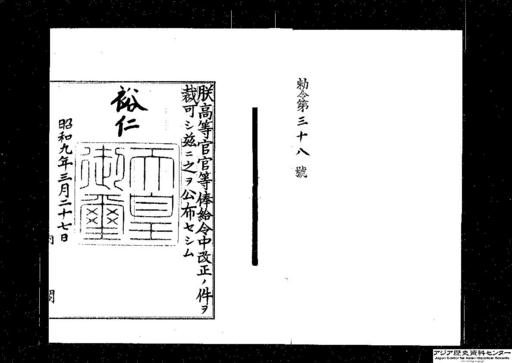 勅令第三十八號
朕高等官官等俸給令中改正ノ件ヲ
裁可シ茲ニ之ヲ公布セシム
裕仁
天皇
御璽
昭和九年三月二十七日
内
閣
アジア歴史資料センター
Japan Center for Asian Historical Records